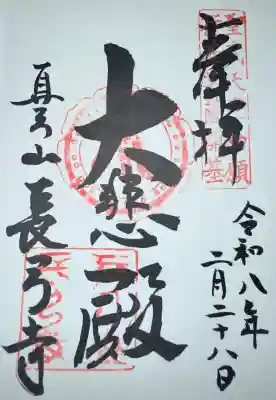 奉拝
令和八年
二月二十八日
大悲殿
真弓山長弓寺